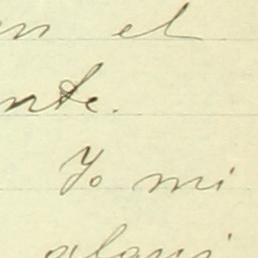 en el
nte.
Yo mi